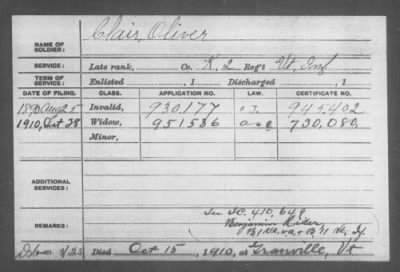 NAME OF SOLDIER: Clair, Oliver
SERVICE: Late rank, Co. K, 2 Reg't Vt. Inf
TERM OF SERVICE: Enlisted , 1 Discharged , 1
DATE OF FILING. CLASS. APPLICATION NO. LAW. CERTIFICATE NO.
1890 Aug 25 Invalid, 930177 945,402
1910, Oct 28 Widow, 951536 730,080
Minor,
ADDITIONAL SERVICES:
See 410,649
REMARKS: Benjamin Rider
Died Oct 15, 1910, at Granville, Vt